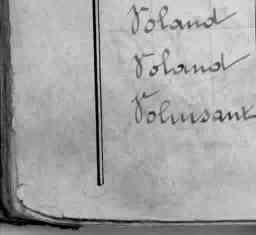 Voland
Voland
Volmsant